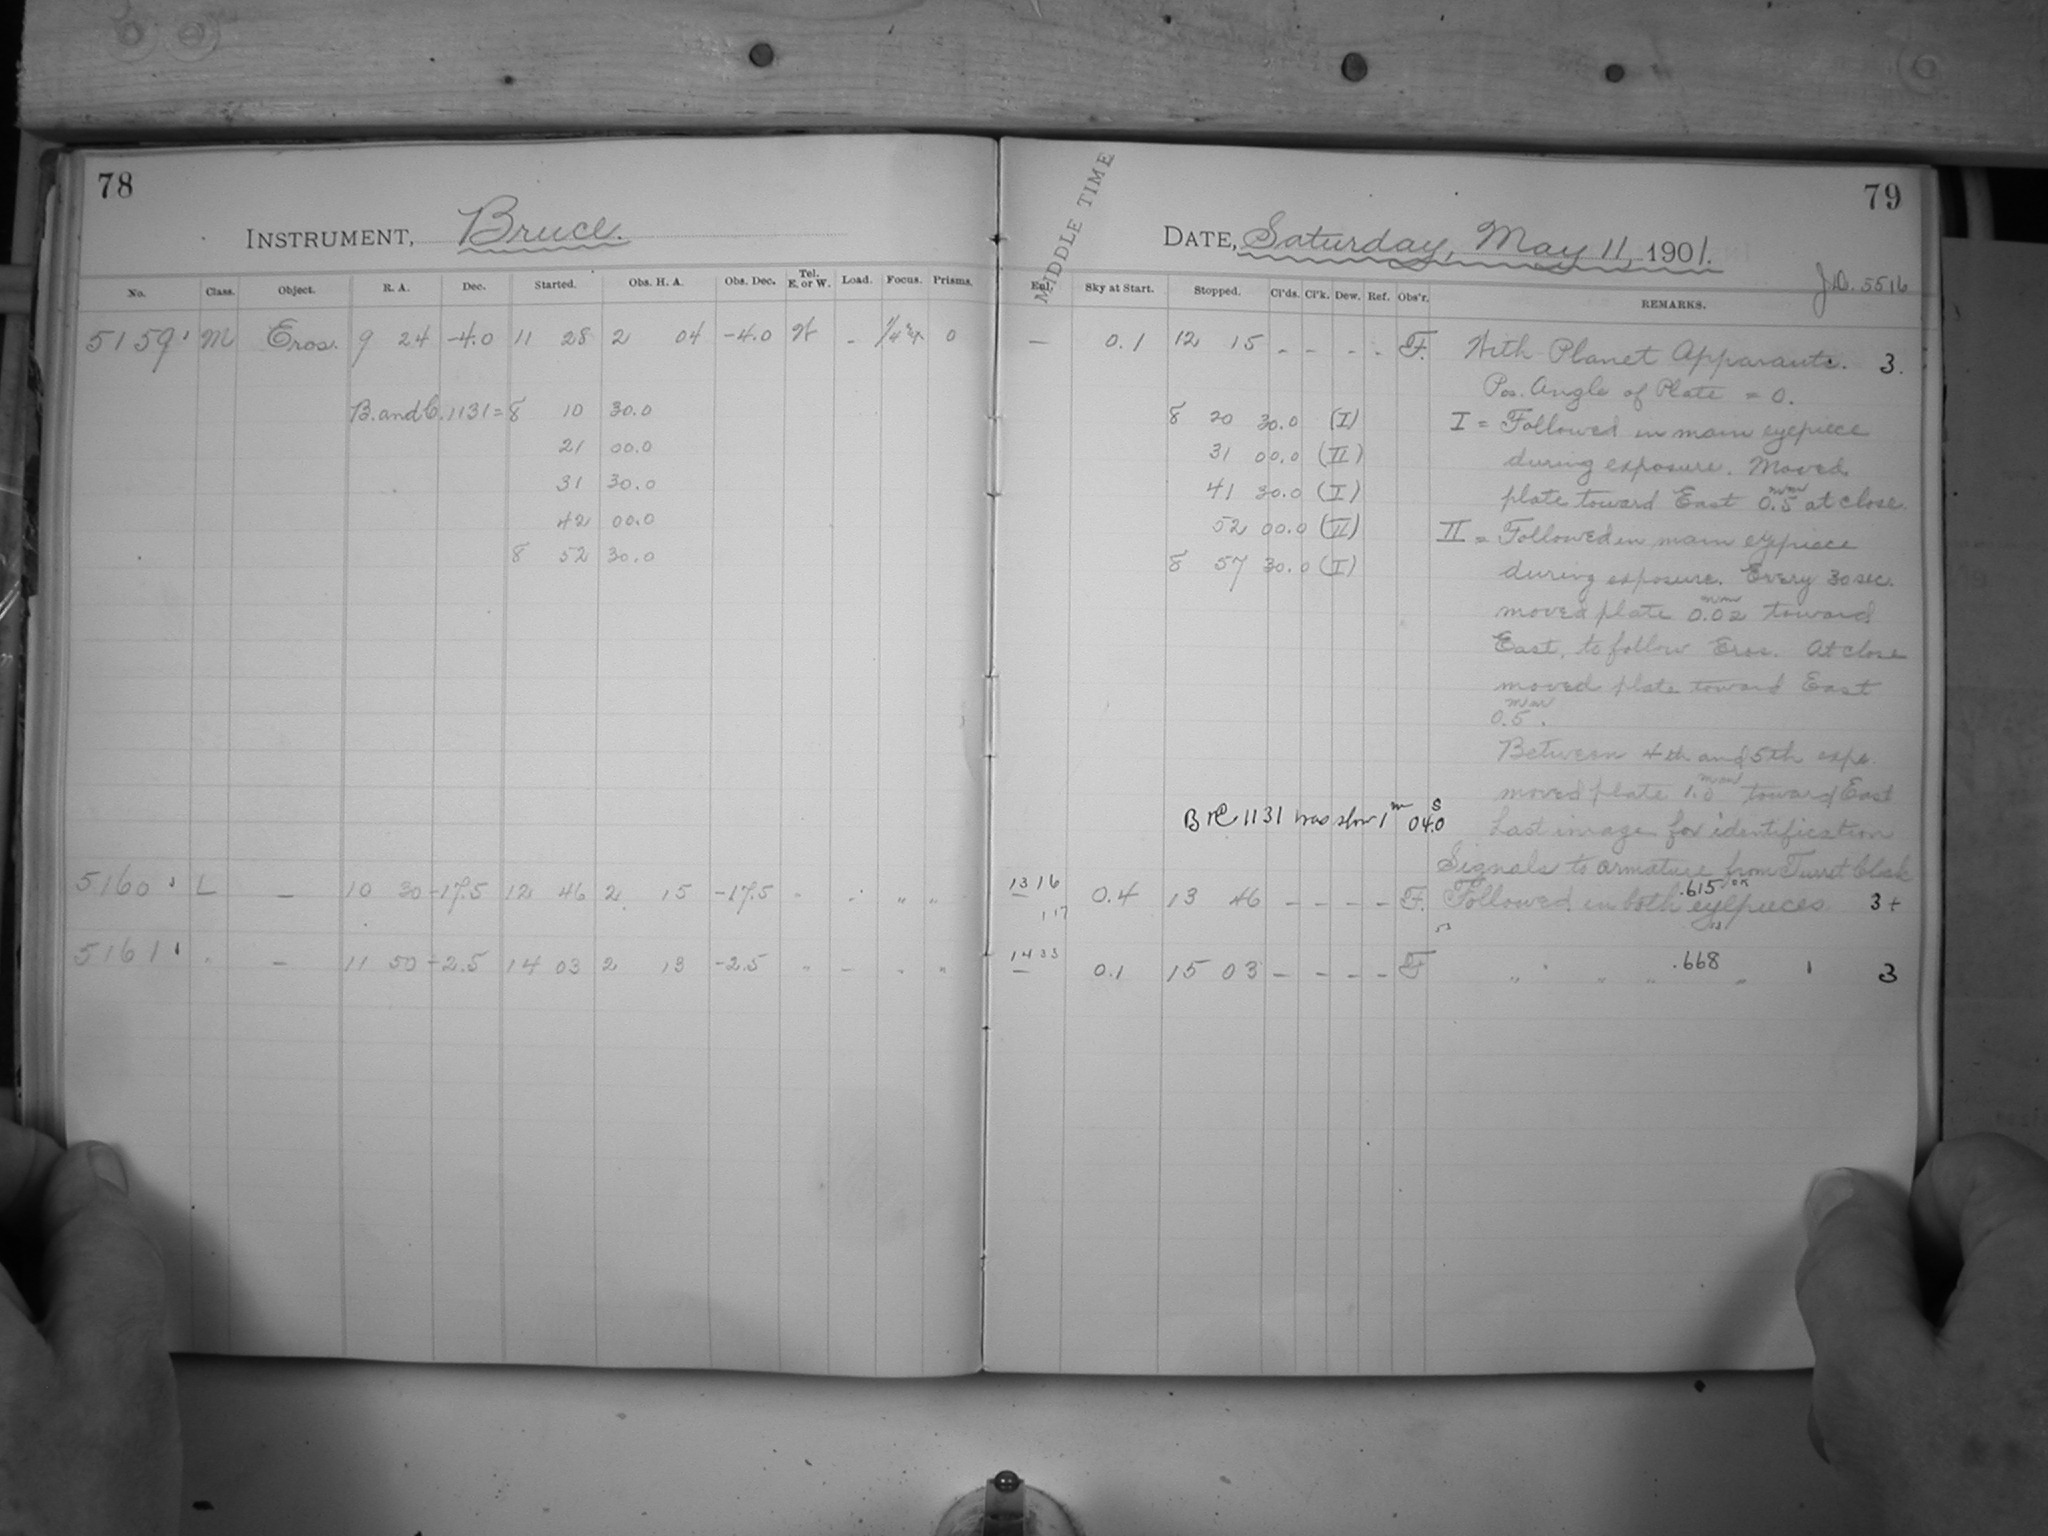 78
INSTRUMENT, Bruce.
No. Class. Object. R. A. Dec. Started. Obs. H. A. Obs. Dec. Tel. E. or W. Load. Focus. Prisms.
5159 M Eros. 9 24 -4.0 11 28 2 04 -4.0 W - 0
B. and C. 1131 = 8 10 30.0
21 00.0
31 30.0
42 00.0
8 52 30.0
5160 L - 10 30 -17.5 12 46 2 15 -17.5 " " " "
5161 " - 11 50 -2.5 14 03 2 13 -2.5 " - " "
79
MIDDLE TIME
DATE, Saturday, May 11, 1901.
J.D. 5516
Enl. Sky at Start. Stopped. Cl'ds. Cl'k. Dew. Ref. Obs'r. REMARKS.
- 0.1 12 15 - - - - F. With Planet Apparatus. 3.
Pos. Angle of Plate = 0.
8 20 30.0 (I) I = Followed in main eyepiece
31 00.0 (II) during exposure. Moved
41 30.0 (I) plate toward East 0.5 mm at close.
52 00.0 (II) II = Followed in main eyepiece
8 57 30.0 (I) during exposure. Every 30 sec.
moved plate 0.02 mm toward
East, to follow Eros. At close
moved plate toward East
0.5 mm.
Between 4th and 5th exps.
moved plate 1.0 mm toward East
B & C 1131 was slow 1m 04.0s Last image for identification
Signals to armature from Turret Clock
1316 0.4 13 46 - - - - F. Followed in both eyepieces .615 3+
117
1433 0.1 15 03 - - - - F " " " .668 " 3